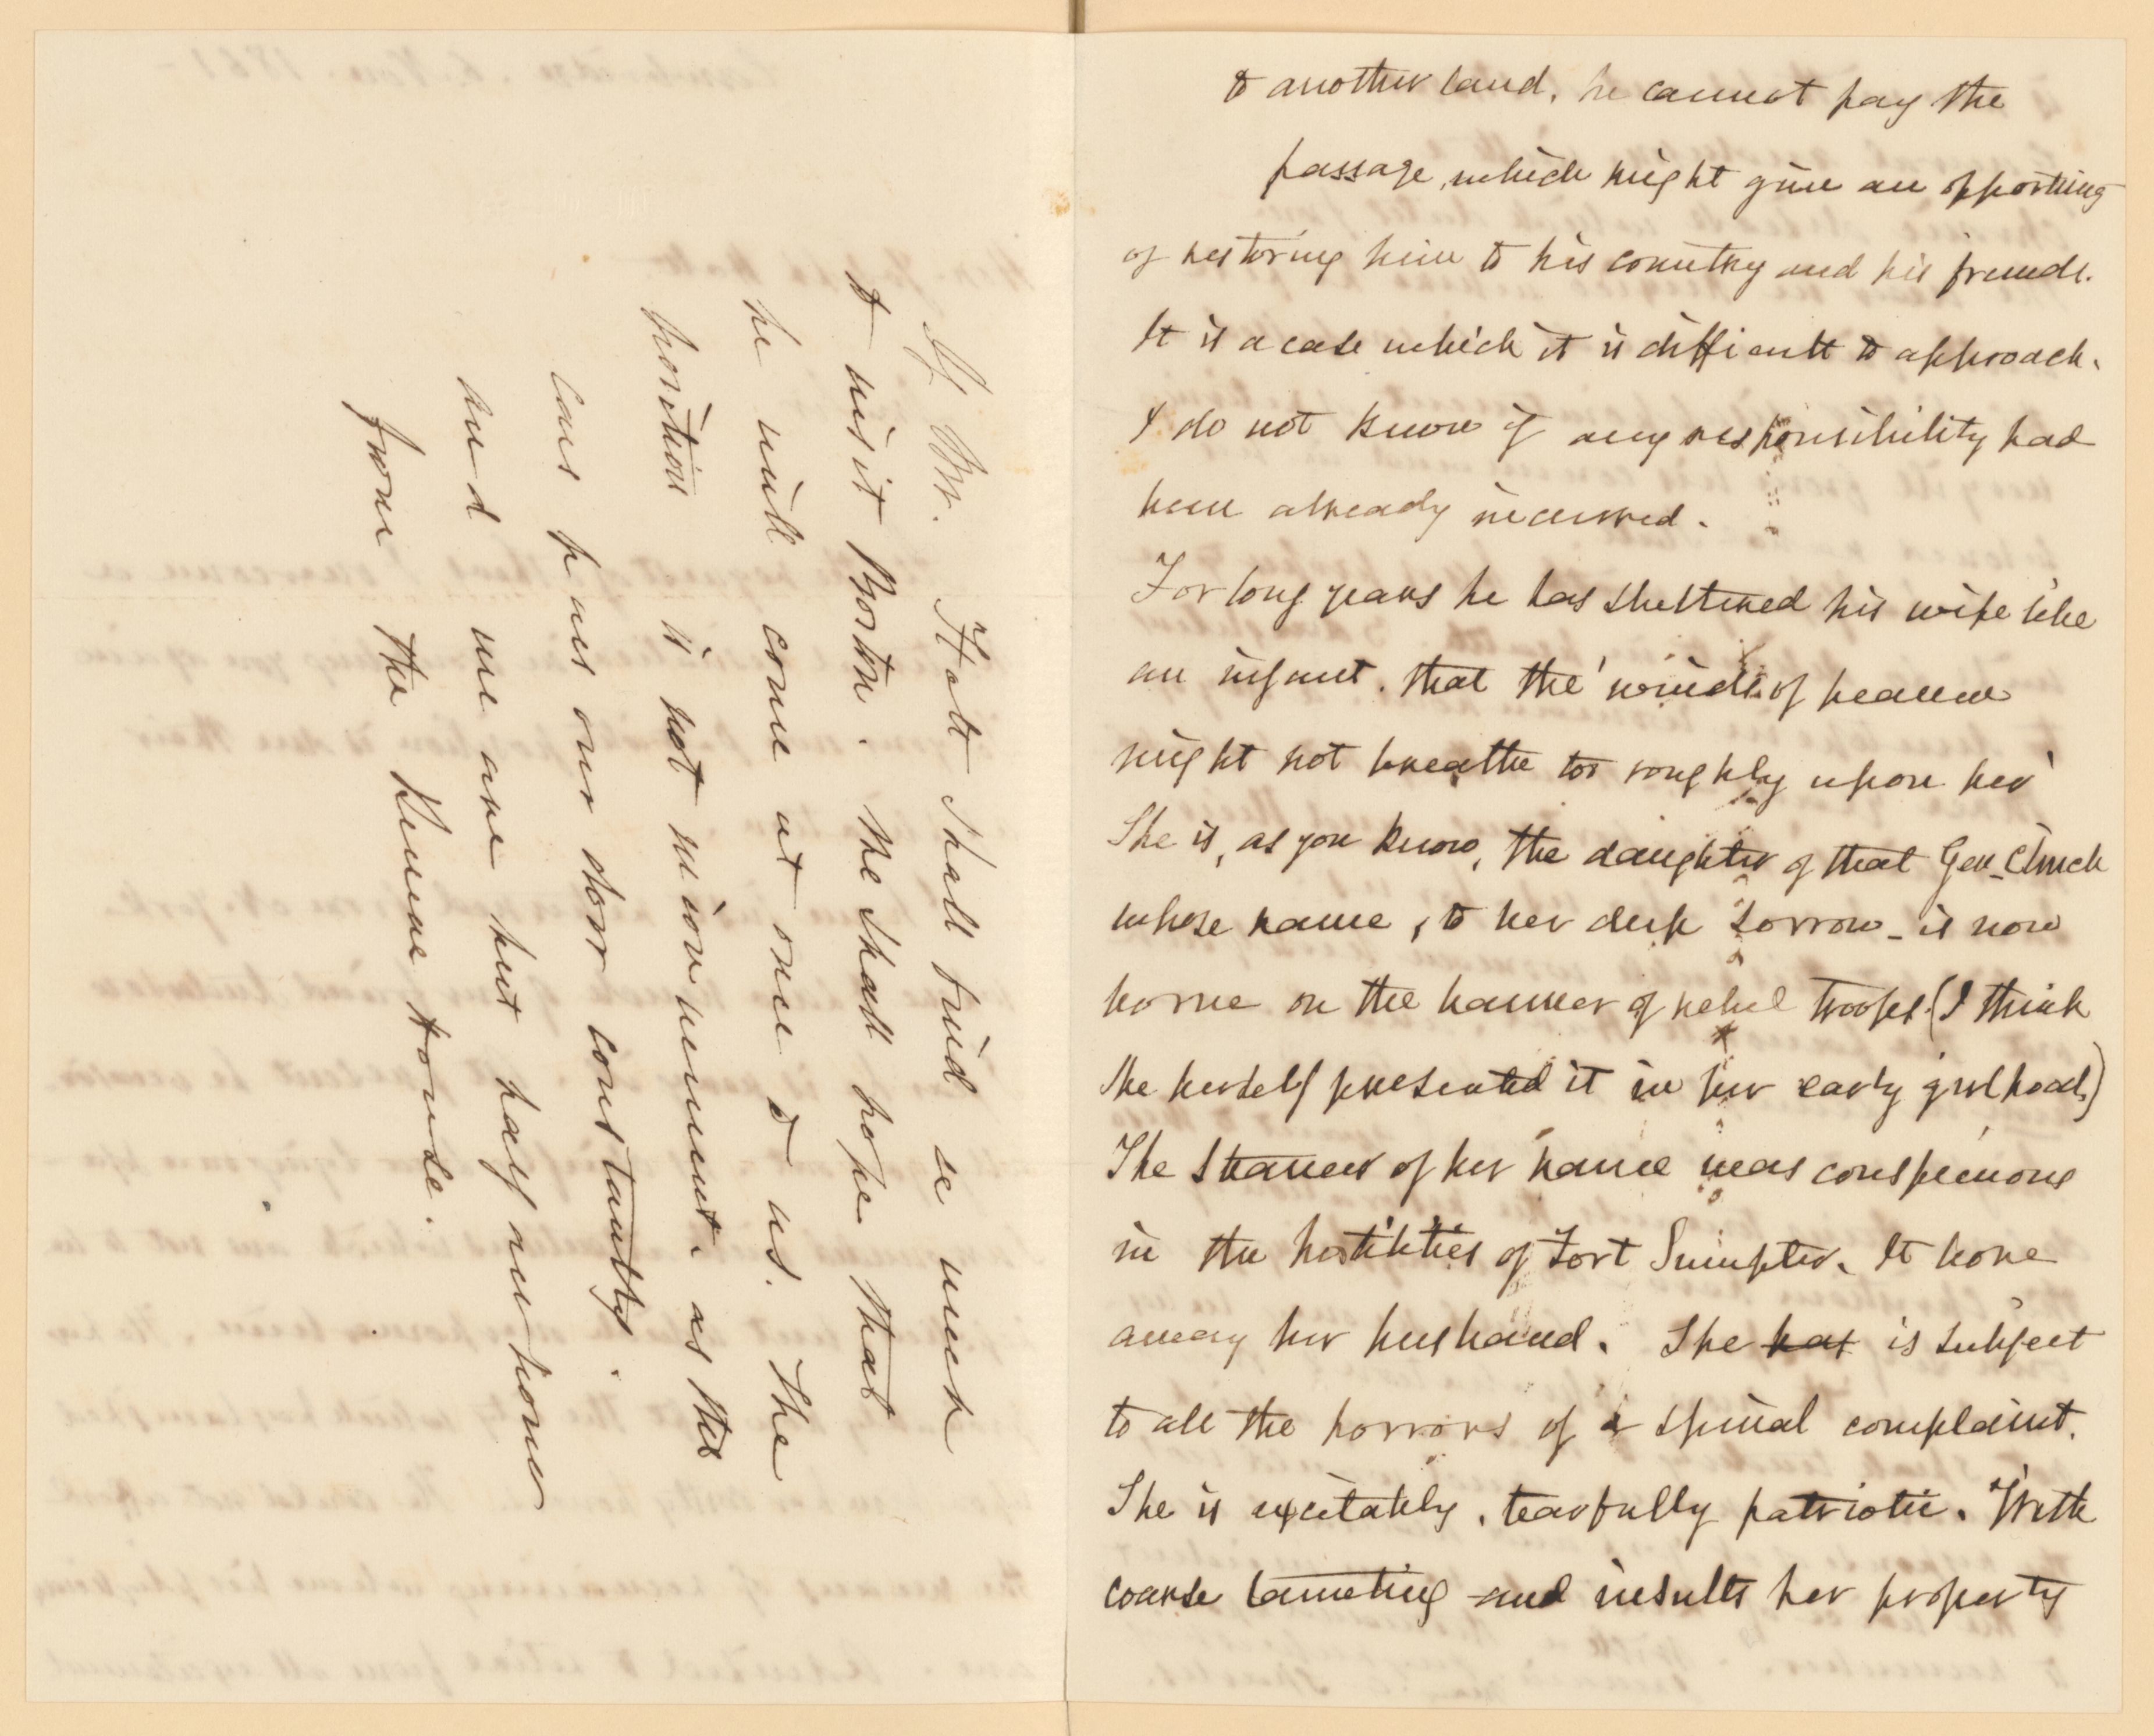 If Mr. Holt shall find so much
to visit Boston. We shall hope that
he will come at once to us. The
position is not inconvenient. as the
cars pass our door constantly.
and we are but half an hour
from the Revere House.
to another land, he cannot pay the
passage, which might give an opportung
of restoring him to his country and his friends.
It is a case which it is difficult to approach.
I do not know if any responsibility had
been already incurred.
For long years he has sheltered his wife like
an infant. that the 'winds of heaven
might not breathe too roughly upon her'
She is, as you know, the daughter of that Gen_Clinch
whose name, to her deep sorrow_ is now
borne on the banner of rebel troops. (I think
she herself presented it in her early girlhood,)
The Steamer of her name was conspicuous
in the hostilities of Fort Sumpter. It bore
away her husband. She has is subject
to all the horrors of a spinal complaint.
She is excitably, tearfully patriotic. With
coarse taunting and insults her property